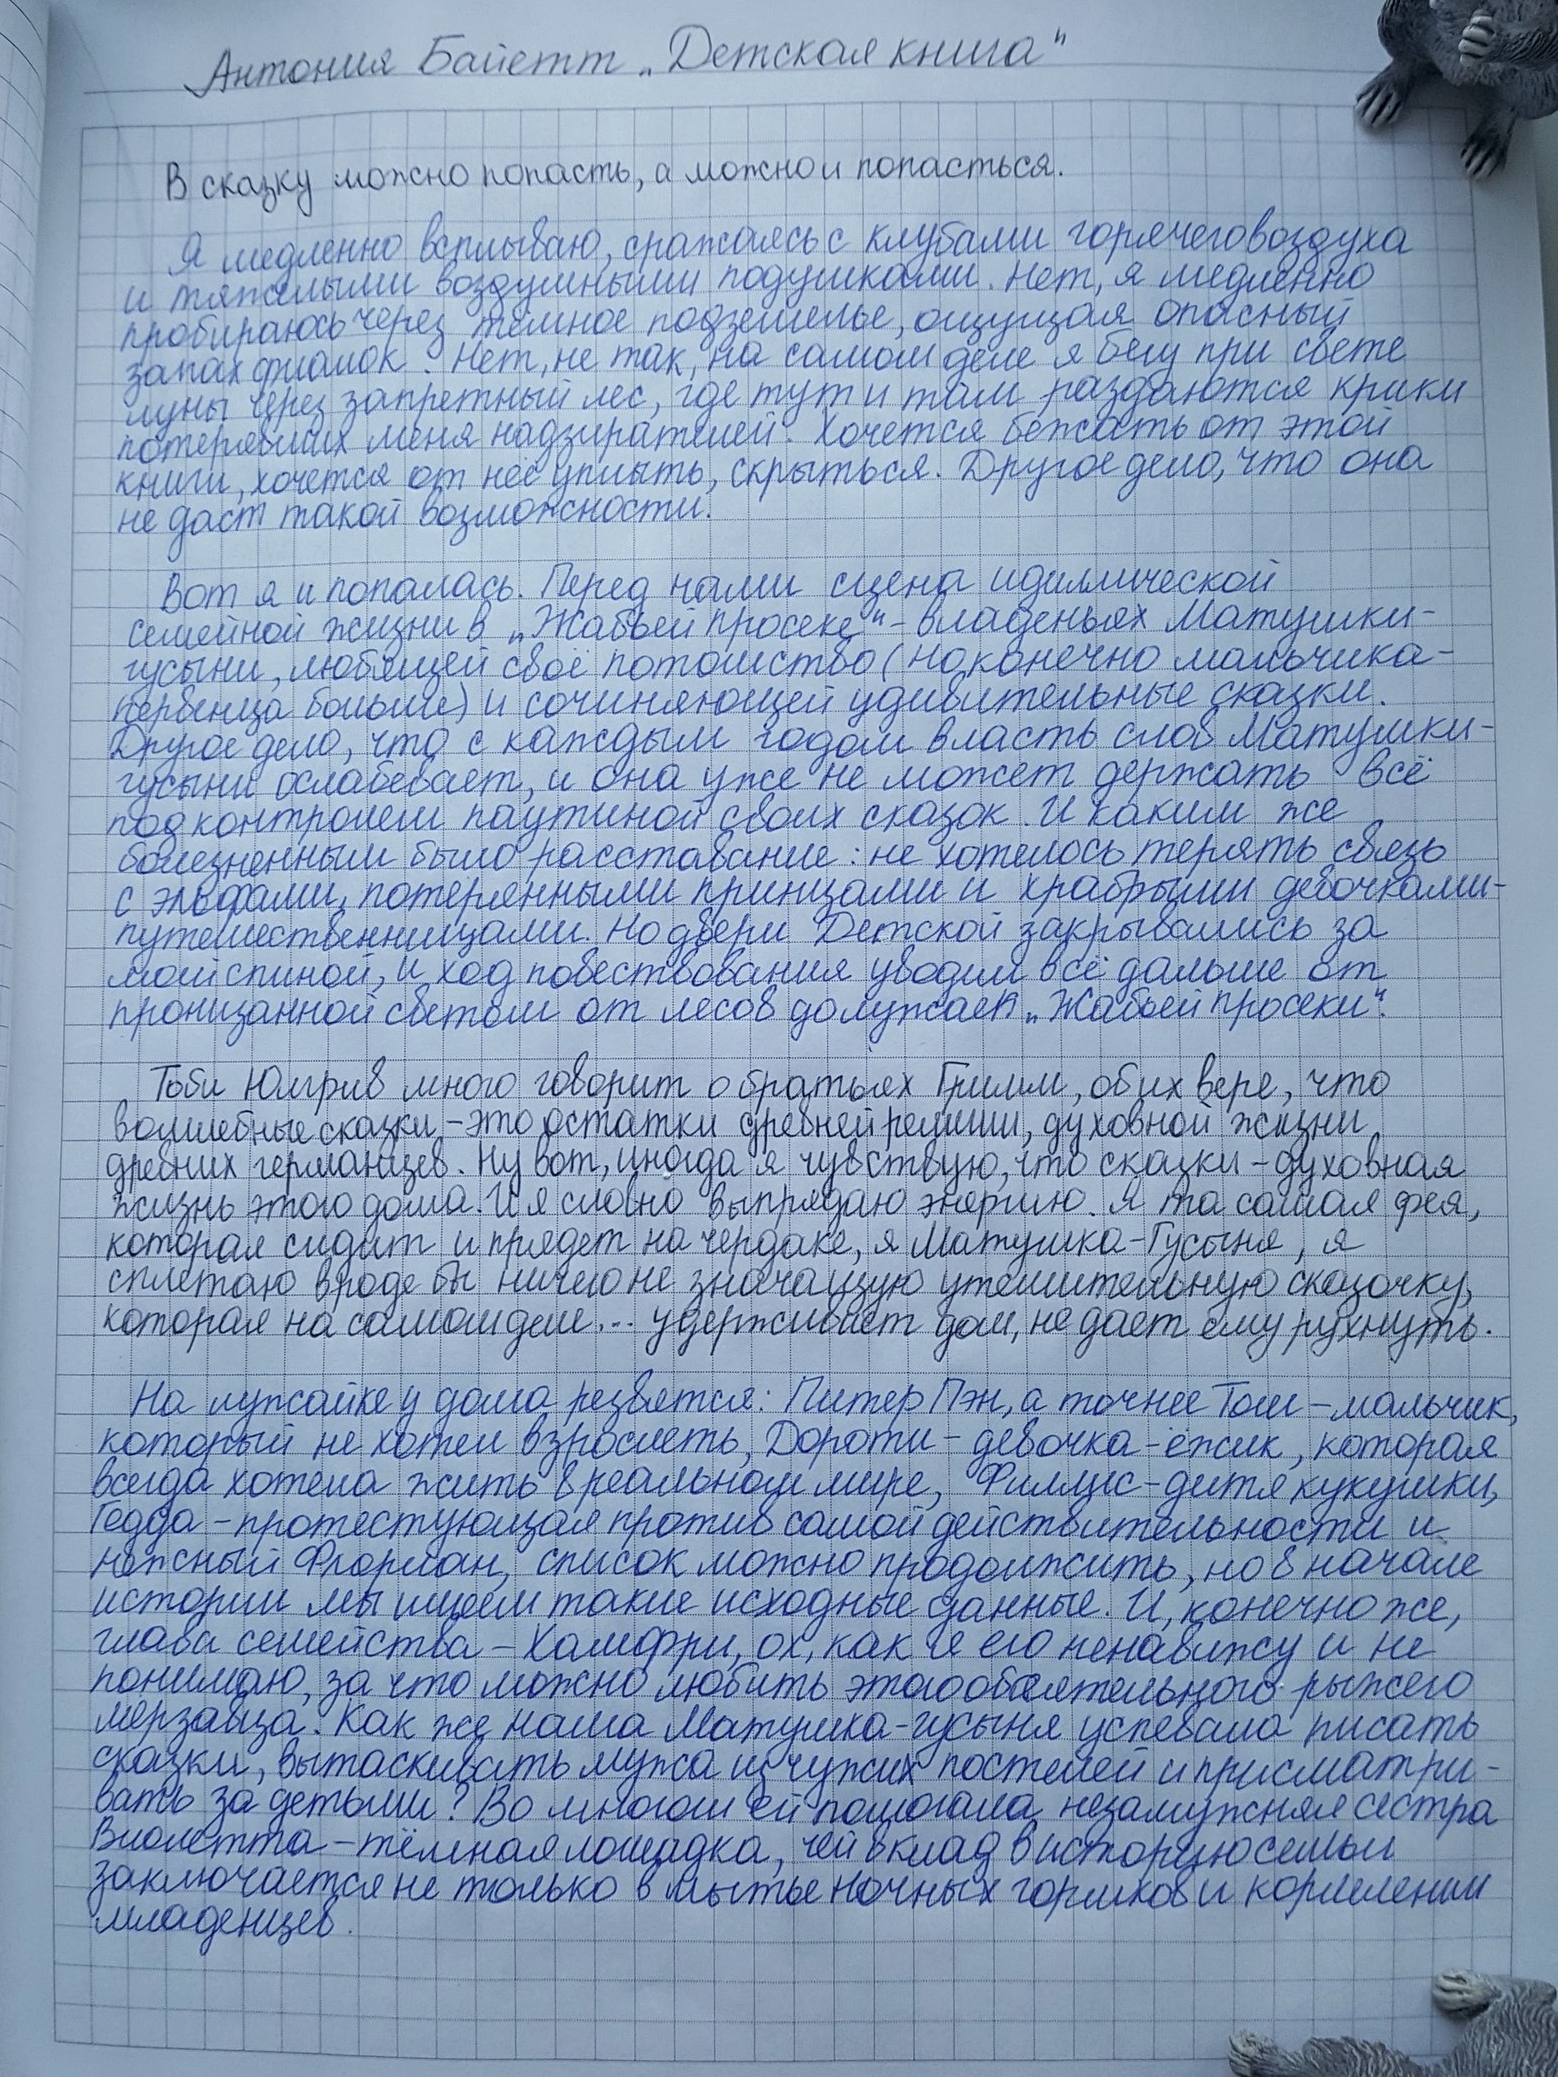 Антония Байетт „Детская книга“
В сказку можно попасть, а можно и попасться.
Я медленно всплываю, сражаясь с клубами горячего воздуха
и тяжёлыми воздушными подушками. Нет, я медленно
пробираюсь через тёмное подземелье, ощущая опасный
запах фиалок. Нет, не так, на самом деле я бегу при свете
луны через запретный лес, где тут и там раздаются крики
потерявших меня надзирателей. Хочется бежать от этой
книги, хочется от неё уплыть, скрыться. Другое дело, что она
не даст такой возможности.
Вот я и попалась. Перед нами сцена идиллической
семейной жизни в „Жабьей просеке“ - владеньях Матушки-
гусыни, любящей своё потомство (но, конечно мальчика-
первенца больше) и сочиняющей удивительные сказки.
Другое дело, что с каждым годом власть слов Матушки-
гусыни ослабевает, и она уже не может держать всё
под контролем паутиной своих сказок. И каким же
болезненным было расставание: не хотелось терять связь
с эльфами, потерянными принцами и храбрыми девочками-
путешественницами. Но двери Детской закрывались за
моей спиной, и ход повествования уводил всё дальше от
пронизанной светом от лесов до лужаек „Жабьей просеки“.
Тоби Юлгрив много говорит о братьях Гримм, об их вере, что
волшебные сказки - это остатки древней религии, духовной жизни
древних германцев. Ну вот, иногда я чувствую, что сказки - духовная
жизнь этого дома. И я словно выпрядаю энергию. Я та самая фея,
которая сидит и прядет на чердаке, я Матушка-Гусыня, я
сплетаю вроде бы ничего не значащую утешительную сказочку,
которая на самом деле... удерживает дом, не дает ему рухнуть.
На лужайке у дома резвятся: Питер Пэн, а точнее Том - мальчик,
который не хотел взрослеть, Дороти - девочка-ёжик, которая
всегда хотела жить в реальном мире, Филлис - дитя кукушки,
Гедда - протестующая против самой действительности и
нежный Флориан, список можно продолжить, но в начале
истории мы имеем такие исходные данные. И, конечно же,
глава семейства - Хамфри, ох, как я его ненавижу и не
понимаю, за что можно любить этого обаятельного рыжего
мерзавца. Как же наша Матушка-гусыня успевала писать
сказки, вытаскивать мужа из чужих постелей и присматри-
вать за детьми? Во многом ей помогала незамужняя сестра
Виолетта - тёмная лошадка, чей вклад в историю семьи
заключается не только в мытье ночных горшков и кормлении
младенцев.